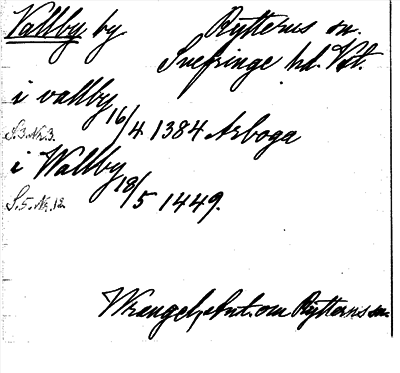 Vallby by Rytterns sn.
Snefringe hd. Vstl.
i vallby 16/4 1384 Arboga
S.3. Nr. 3.
i Wallby 18/5 1449.
S.5. Nr. 12.
Wrangel, Ant. om Rytterns sn.